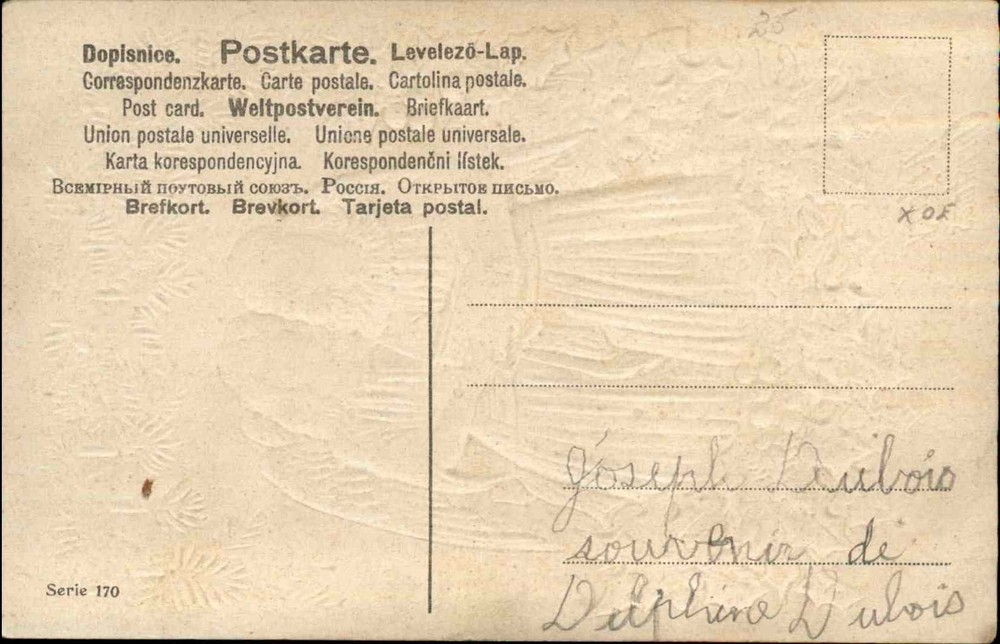 25
Dopisnice. Postkarte. Levelező-Lap.
Correspondenzkarte. Carte postale. Cartolina postale.
Post card. Weltpostverein. Briefkaart.
Union postale universelle. Unione postale universale.
Karta korespondencyjna. Korespondenční lístek.
Всемірный поутовый союзъ. Россія. Открытое письмо.
Brefkort. Brevkort. Tarjeta postal.
X OE
Joseph Dubois
souvenir de
Delphine Dubois
Serie 170